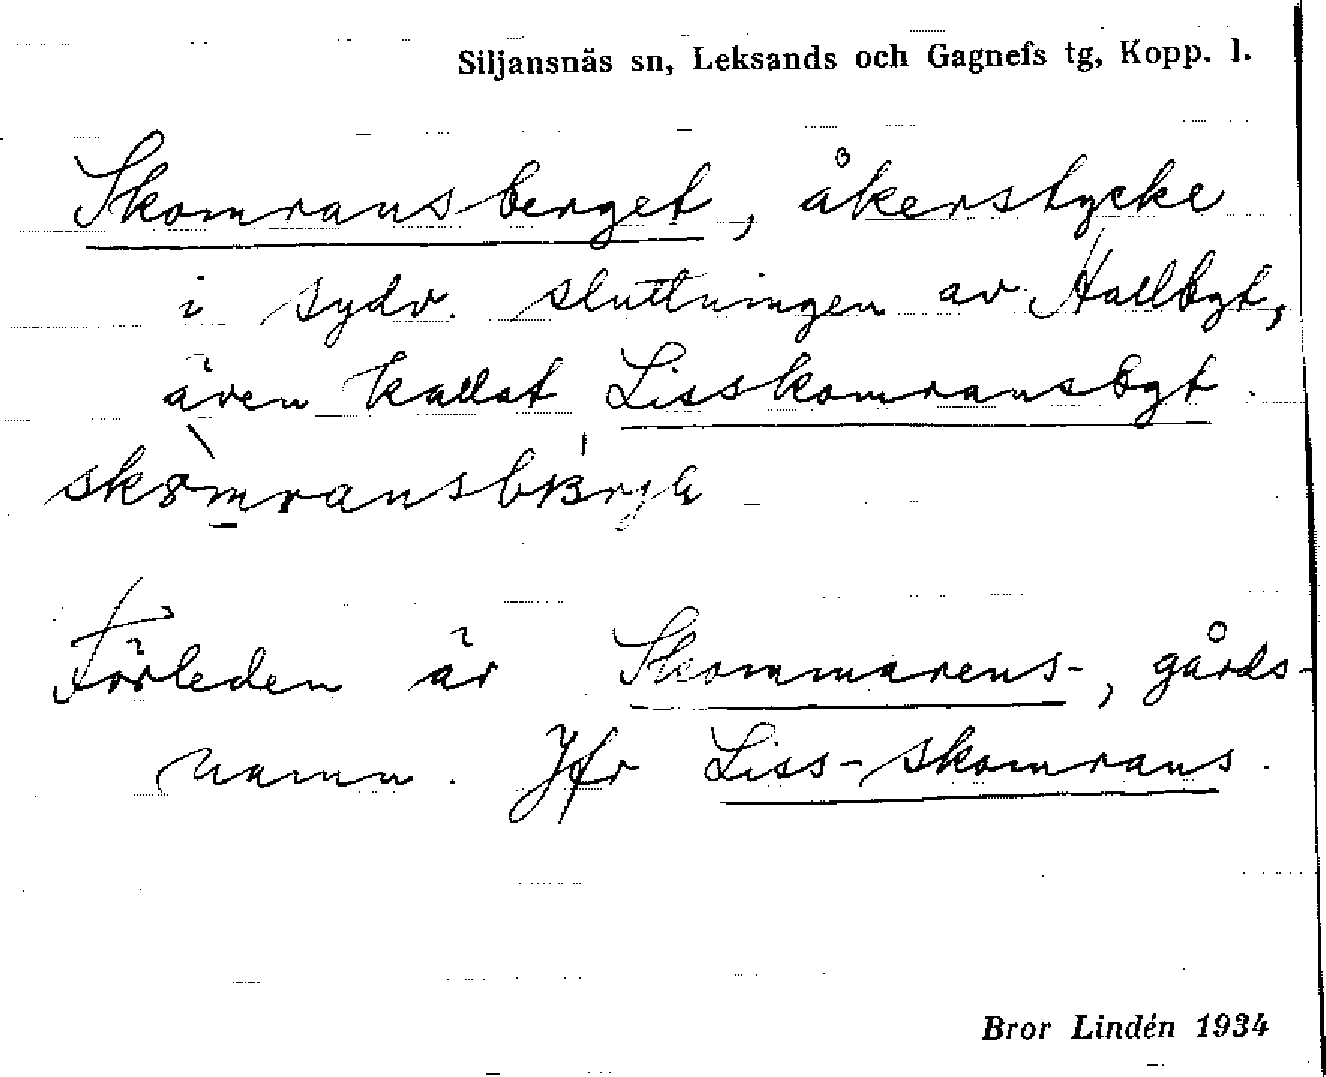 Siljansnäs sn, Leksands och Gagnefs tg, Kopp. l.
Skomransberget, åkerstycke
i sydv. sluttningen av Hallbyt,
även kallat Lisskomransbyt.
Förleden är Skommarens-, gårds-
namn. Jfr Liss-skomrans.
Bror Lindén 1934